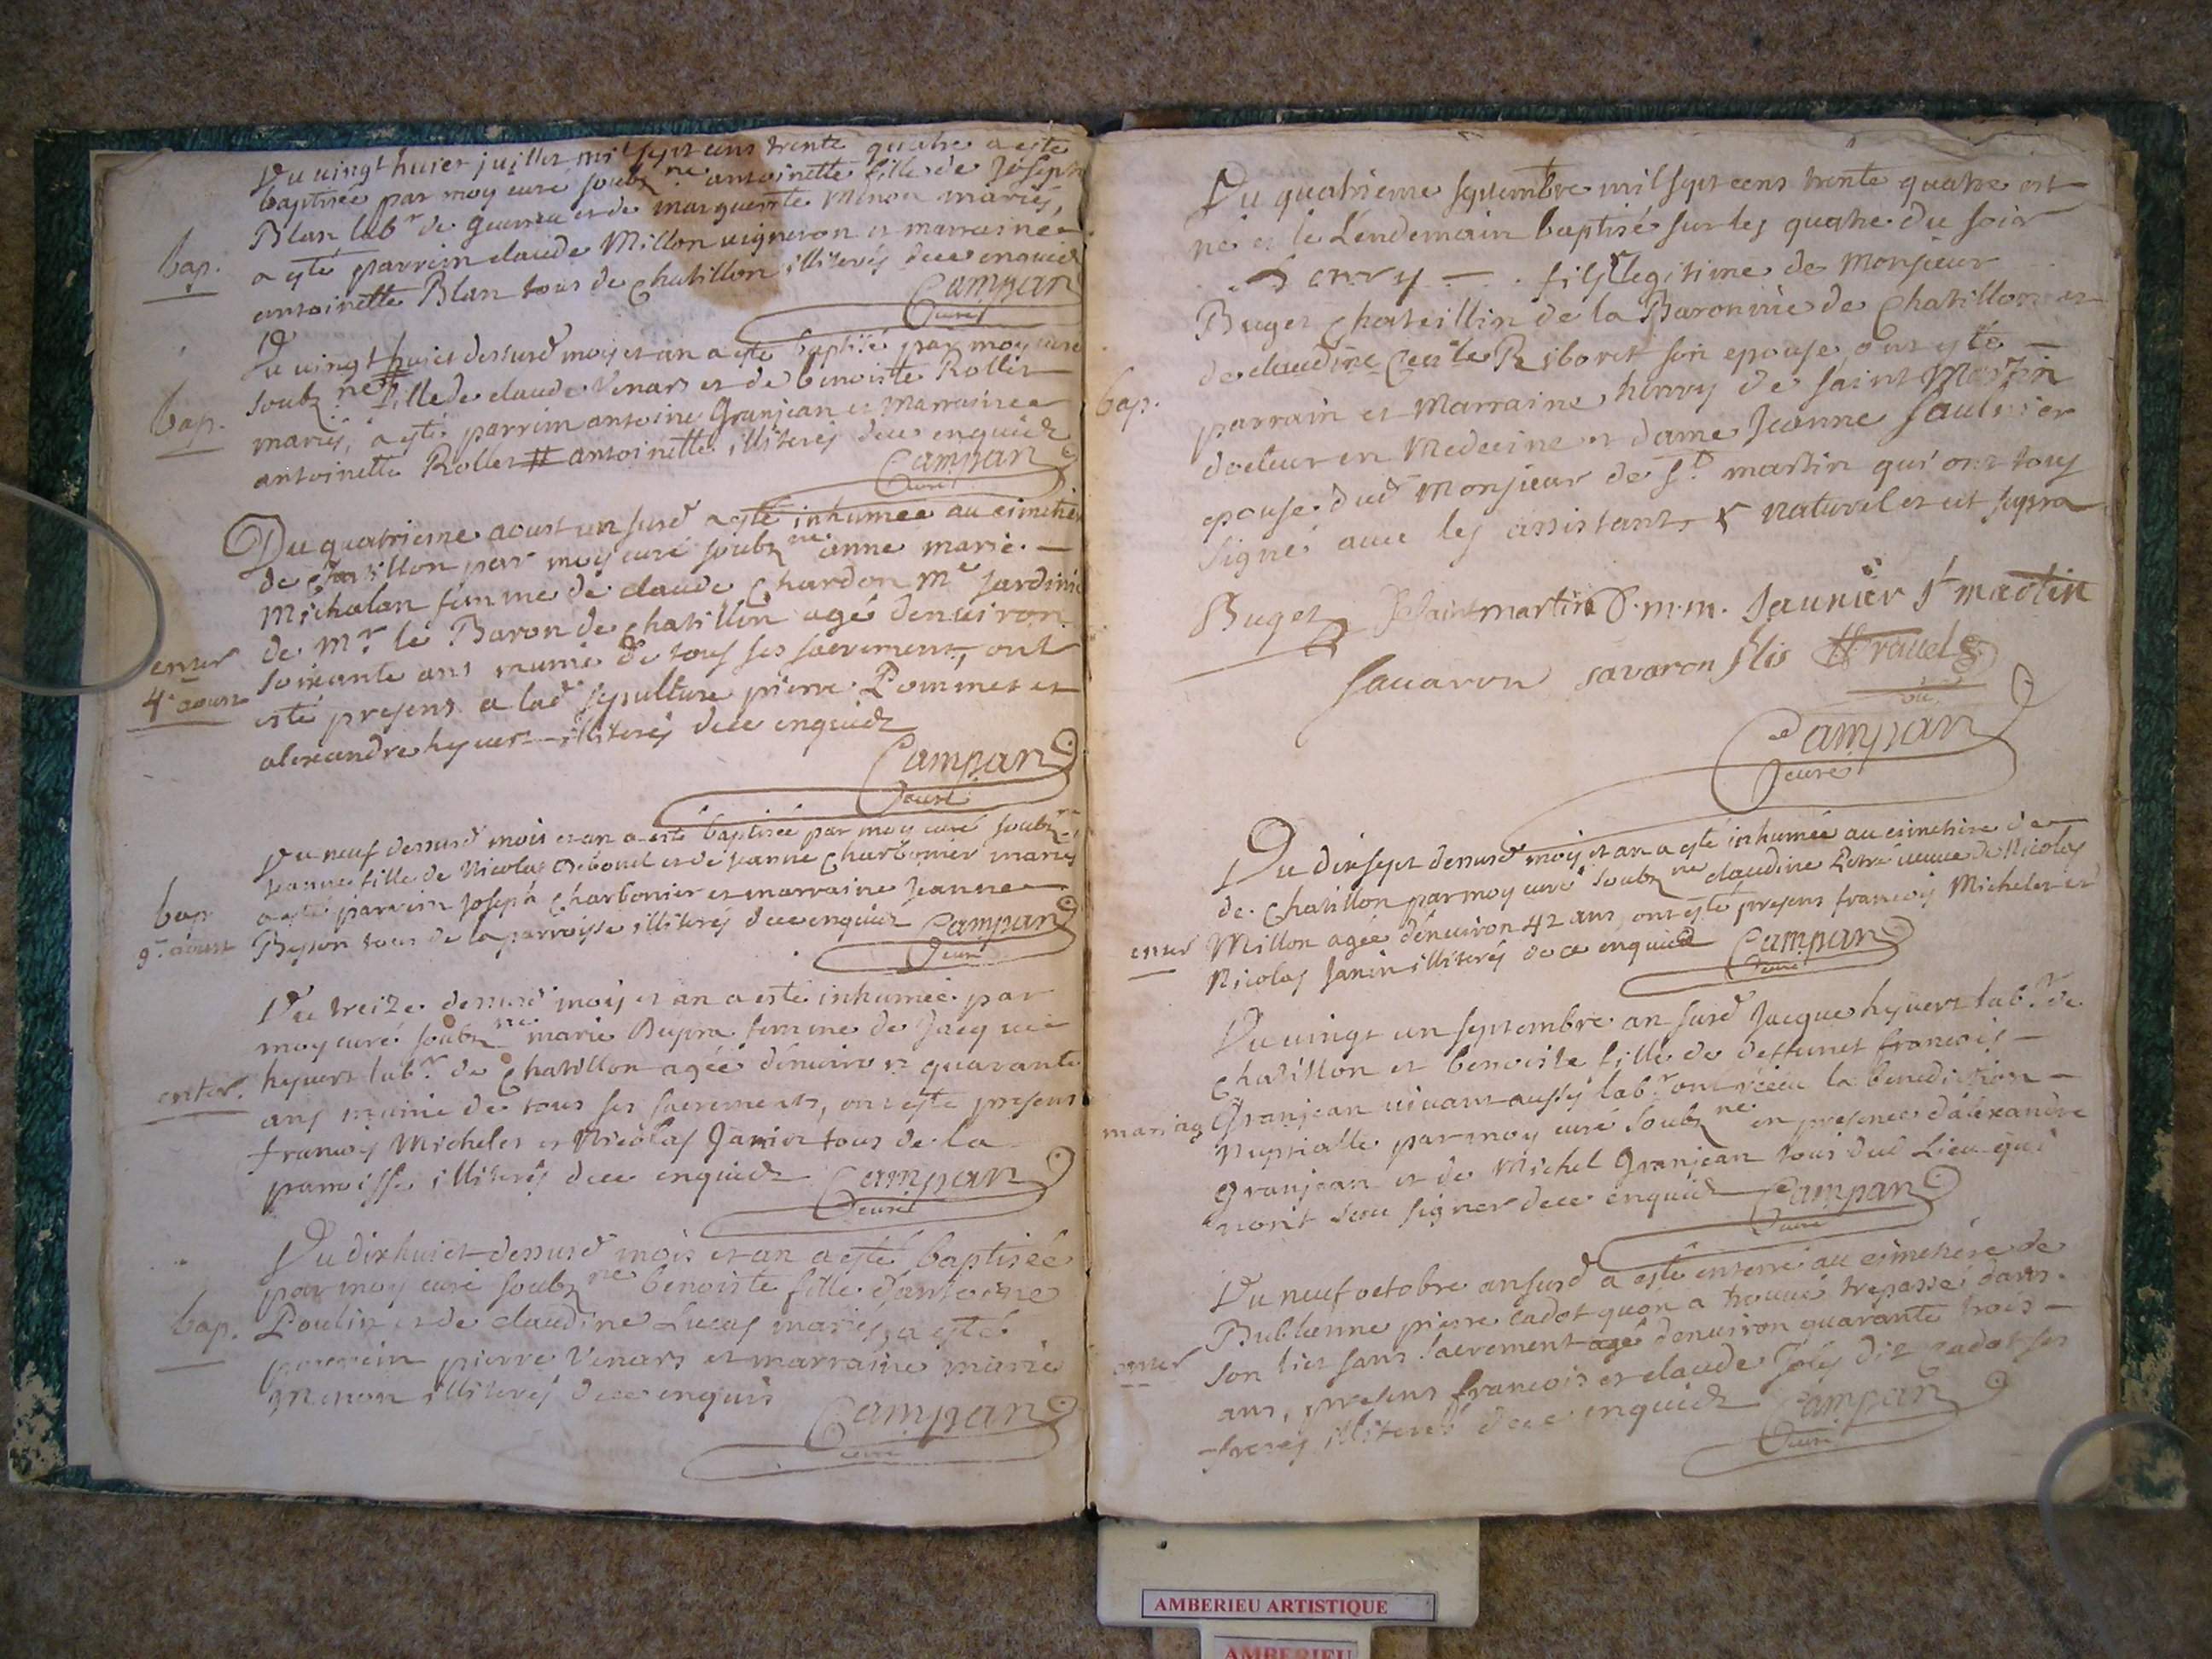 Du vingt huict juillet mil sept cens trente quatre a esté
baptisée par moy curé soubz.ne antoinette fille de Joseph
Blan lab.r de et de marguerite Minon mariés,
bap. a esté parrein claude Millon vigneron et marraine
antoinette Blan tous de chatillon illiterés de ce enquid
Campan
curé
Du vingt huict dessusd mois et an a esté baptisé par moy curé
soubz.ne # fille de claude Venars et de benoiste Rollet
bap. mariés, a esté parrein antoine Granjean et marraine
antoinette Rollet # antoinette illiterés de ce enquid
Campan
curé
Du quatrieme aoust an susd a esté inhumee au cimetier
de chatillon par moy curé soubz.ne anne marie
Michalan femme de claude Chardon M.e Jardini
de M.r le Baron de chatillon agé denuiron
enter soixante ans munie de tous ses sacrement, ont
4.e aoust esté presens a lad sepulture pierre Pommet et
alexandre hyvert illiterés de ce enquid
Campan
curé
Du neuf dessusd mois et an a esté baptisée par moy curé soubz.ne
Jeanne fille de Nicolas et de Jeanne Charbonier mariés
bap a esté parrein Joseph Charbonier et marraine Jeanne
9.e aoust Besson tous de la parroisse illiterés de ce enquid Campan
curé
Du treize dessusd mois et an a esté inhumée par
moy curé soubz.ne marie Dupra femme de Jacque
enter. hyvert lab.r de Chatillon agée denuiron quarante
ans munie de tous ses sacrements, ont esté presens
francois Michelet et Nicolas Janin tous de la
parroisse illiterés de ce enquid Campan
curé
Du dix huict dessusd mois et an a esté baptisée
par moy curé soubz.ne benoiste fille d'antoine
bap. Poulin et de claudine Lucas mariés, a esté
parrein pierre Venars et marraine marie
Minon illiterés de ce enquis
Campan
curé
Du quatrieme septembre mil sept cens trente quatre est
né et le Lendemain baptisé sur les quatre du soir
henry fils legitime de Monsieur
Buget chateillin de la Baronnie de Chatillon et
de claudine Cecile Riboret son epouse, ont esté
bap. parrain et Marraine henry de saint Martin
docteur en Medecine et dame Jeanne Saulnier
epouse dud Monsieur de S.t martin qui ont tous
signé avec les assistants, naturel et ut supra
Buget De Saint martin D.m.m. Saunier St martin
Savaron savaron filis
Campan
curé
Du dix sept dessusd mois et an a esté inhumée au cimetiere de
de Chatillon par moy curé soubz.ne claudine veuve de Nicolas
enter Millon agée denuiron 42 ans, ont esté presens francois Michelet et
Nicolas Janin illiterés de ce enquid Campan
curé
Du vingt un septembre an susd Jacque hyvert lab.r de
Chatillon et benoiste fille de deffunct francois
mariag Granjean vivant aussy lab.r ont receu la benediction
nuptialle par moy curé soubz.ne en presence d'alexandre
granjean et de Michel Granjean tous dud Lieu qui
n'ont sceu signer de ce enquid Campan
curé
Du neuf octobre an susd a esté enterré au cimetiere de
pierre cadot qu'on a trouvé trepassé dans
enter son lict sans sacrement agé denuiron quarante trois
ans, presens francois et claude dit cadot ses
freres illiterés de ce enquid Campan
curé
AMBERIEU ARTISTIQUE
AMBERIEU